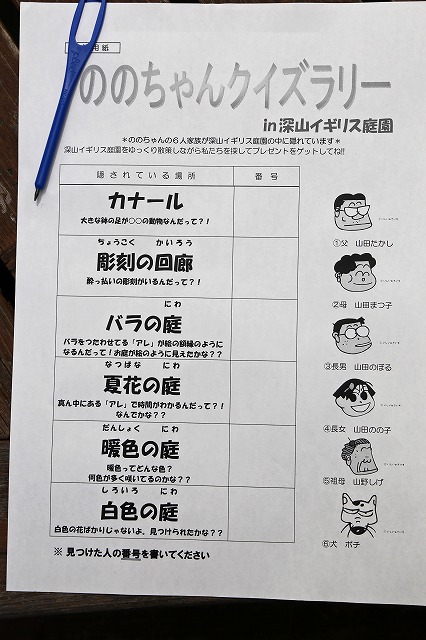 用紙
ののちゃんクイズラリー
in 深山イギリス庭園
*ののちゃんの6人家族が深山イギリス庭園の中に隠れています*
深山イギリス庭園をゆっくり散策しながら私たちを探してプレゼントをゲットしてね!!
隠されている場所 番号
カナール
大きな鉢の足が○○の動物なんだって?!
ちょうこく かいろう
彫刻の回廊
酔っ払いの彫刻がいるんだって?!
にわ
バラの庭
バラをつたわせてる「アレ」が絵の額縁のように
なるんだって!お庭が絵のように見えたかな??
なつばな にわ
夏花の庭
真ん中にある「アレ」で時間がわかるんだって?!
なんでかな??
だんしょく にわ
暖色の庭
暖色ってどんな色?
何色が多く咲いてるのかな??
しろいろ にわ
白色の庭
白色の花ばかりじゃないよ。見つけられたかな??
※ 見つけた人の番号を書いてください
①父 山田たかし
②母 山田まつ子
③長男 山田のぼる
④長女 山田のの子
⑤祖母 山野しげ
⑥犬 ポチ